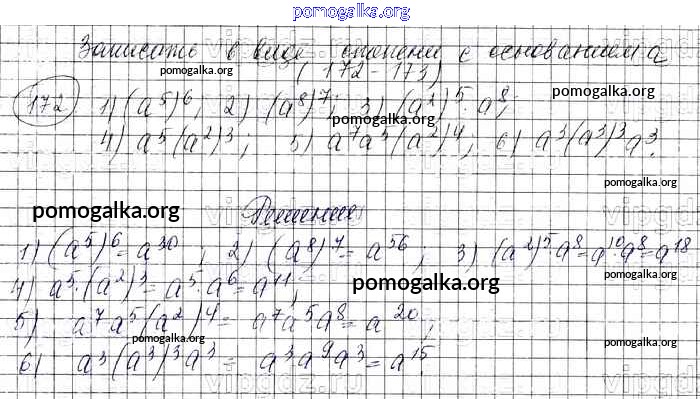 pomogalka.org
Записать в виде степени с основанием a
(172-173)
pomogalka.org
172 1) (a⁵)⁶, 2) (a⁸)⁷; 3) (a²)⁵·a⁸;
pomogalka.org
pomogalka.org
4) a⁵(a²)³; 5) a⁷a⁵(a²)⁴, 6) a³(a³)³a³.
pomogalka.org
pomogalka.org
Решение
1) (a⁵)⁶=a³⁰, 2) (a⁸)⁷=a⁵⁶; 3) (a²)⁵·a⁸=a¹⁰·a⁸=a¹⁸
pomogalka.org
4) a⁵·(a²)³=a⁵·a⁶=a¹¹,
pomogalka.org
5) a⁷a⁵(a²)⁴= a⁷a⁵a⁸=a²⁰;
pomogalka.org
pomogalka.org
6) a³(a³)³a³= a³a⁹a³=a¹⁵.
vipgdz.ru